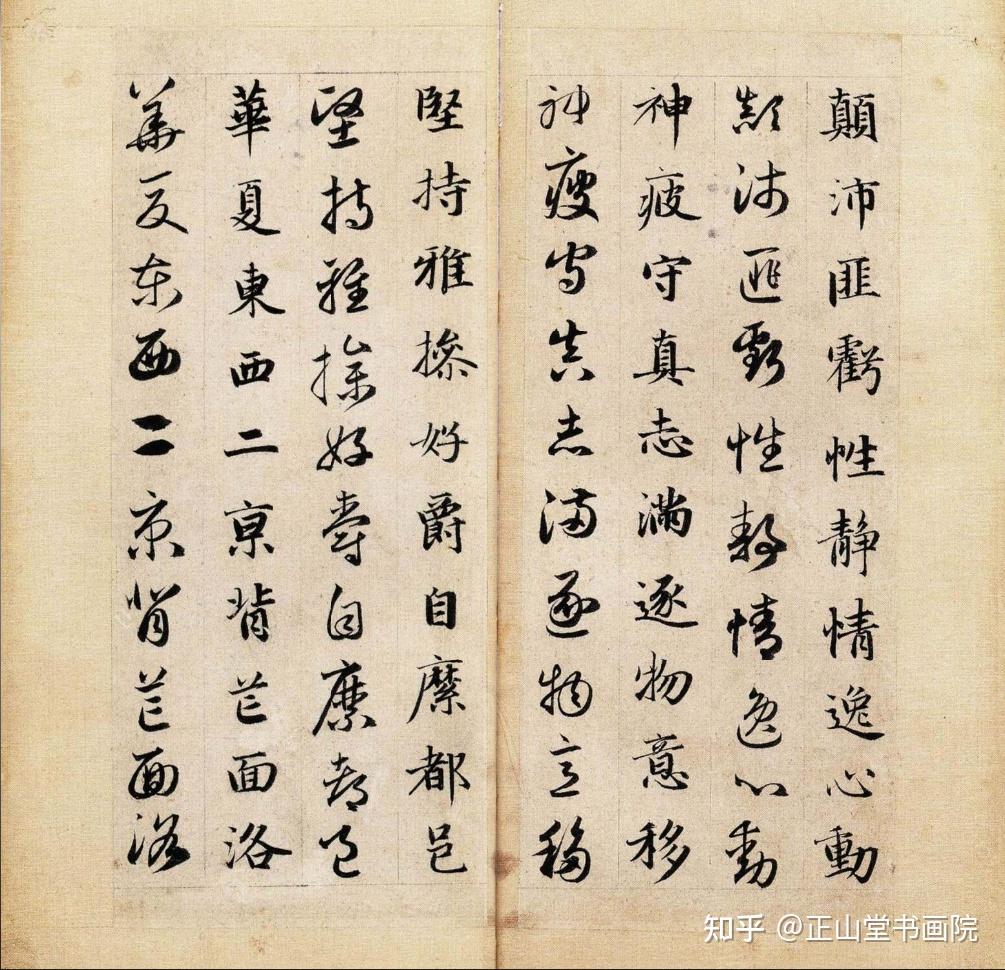 顛沛匪虧性静情逸心動
顛沛匪虧性静情逸心動
神疲守真志滿逐物意移
神疲守真志滿逐物意移
堅持雅操好爵自縻都邑
堅持雅操好爵自縻都邑
華夏東西二京背芒面洛
華夏東西二京背芒面洛
知乎 @正山堂书画院